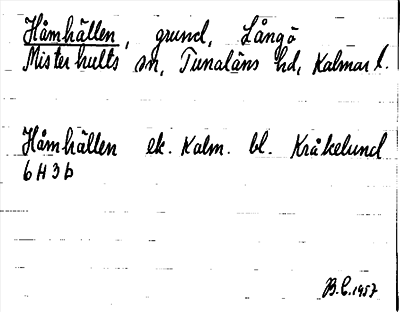 Håmhällen, grund, Långö
Misterhults sn, Tunaläns hd, Kalmar l.
Håmhällen ek. Kalm. bl. Kråkelund
6H3b
B.C. 1957